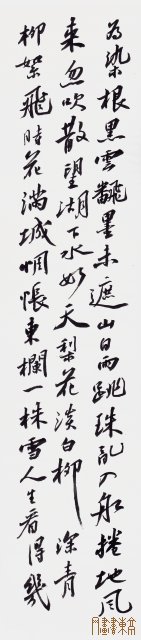 為染根黑雲飜墨未遮山白雨跳珠乱入船捲地風
来忽吹散望湖下水如天梨花淡白柳深青
柳絮飛時花滿城惆悵東欄一株雪人生看得幾